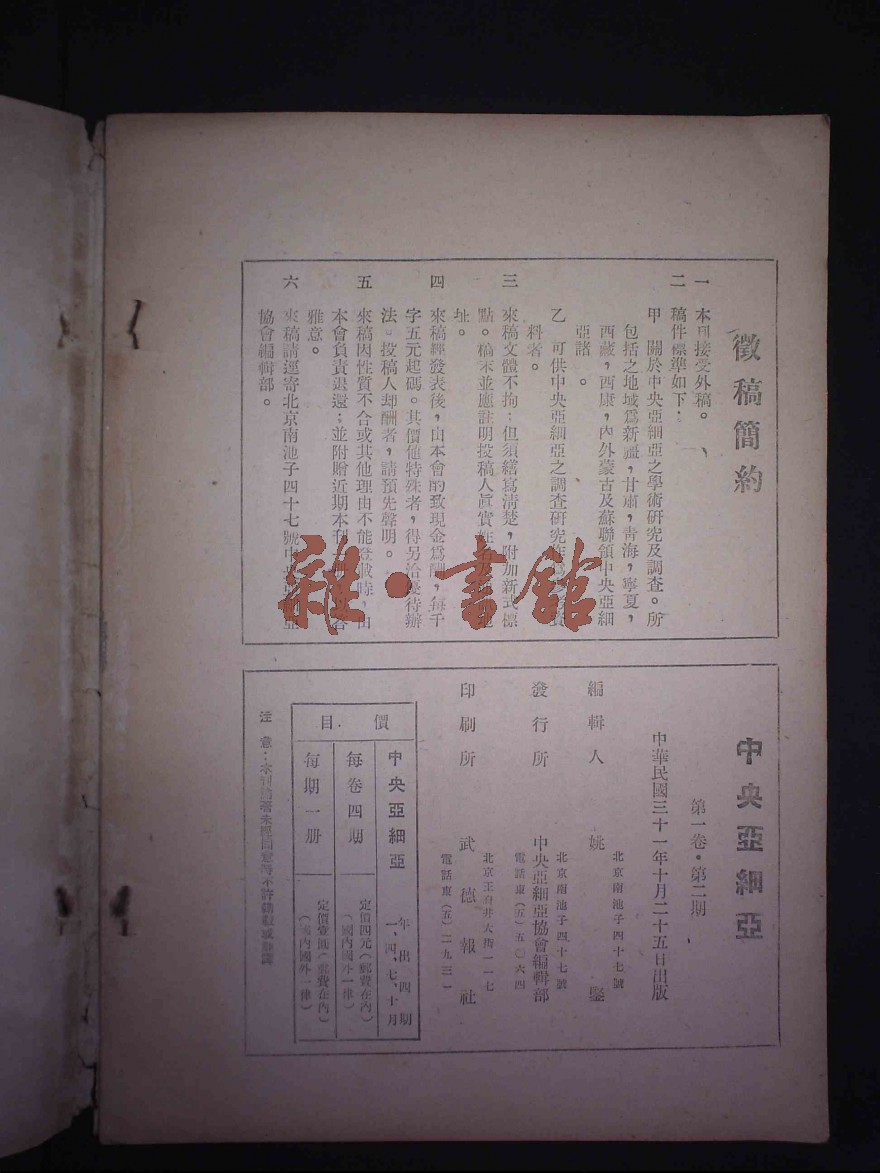 徵稿簡約
一 本刊接受外稿。
二 稿件標準如下：
甲 關於中央亞細亞之學術研究及調查。所
包括之地域爲新疆，甘肅，青海，寧夏，
西藏，西康，內外蒙古及蘇聯領中央亞細
亞諸 。
乙 可供中央亞細亞之調查研究
料者。
三 來稿文體不拘；但須繕寫清楚，附加新式標
點。稿末並應註明投稿人眞實姓名及
址。
四 來稿經發表後，由本會酌致現金爲酬，每千
字五元起碼。其價值特殊者，得另洽優待辦
法。投稿人却酬者，請預先聲明。
五 來稿因性質不合或其他理由不能登載時，由
本會負責退還；並附贈近期本刊
雅意。
六 來稿請逕寄北京南池子四十七號中央亞
協會編輯部。
中央亞細亞
第一卷·第二期
中華民國三十一年十月二十五日出版
北京南池子四十七號
編輯人 姚鋻
北京南池子四十七號
發行所 中央亞細亞協會編輯部
電話東（五）五〇六四
北京王府井大街一一七
印刷所 武德報社
電話東（五）二九三一
價目
中央亞細亞 年出四期
一、四、七、十月
每卷四期 定價四元（郵費在內）
（國內國外一律）
每期一册 定價壹圓（郵費在內）
（國內國外一律）
注意：本刊論著未經同意時不許轉載或翻譯
雜·書館